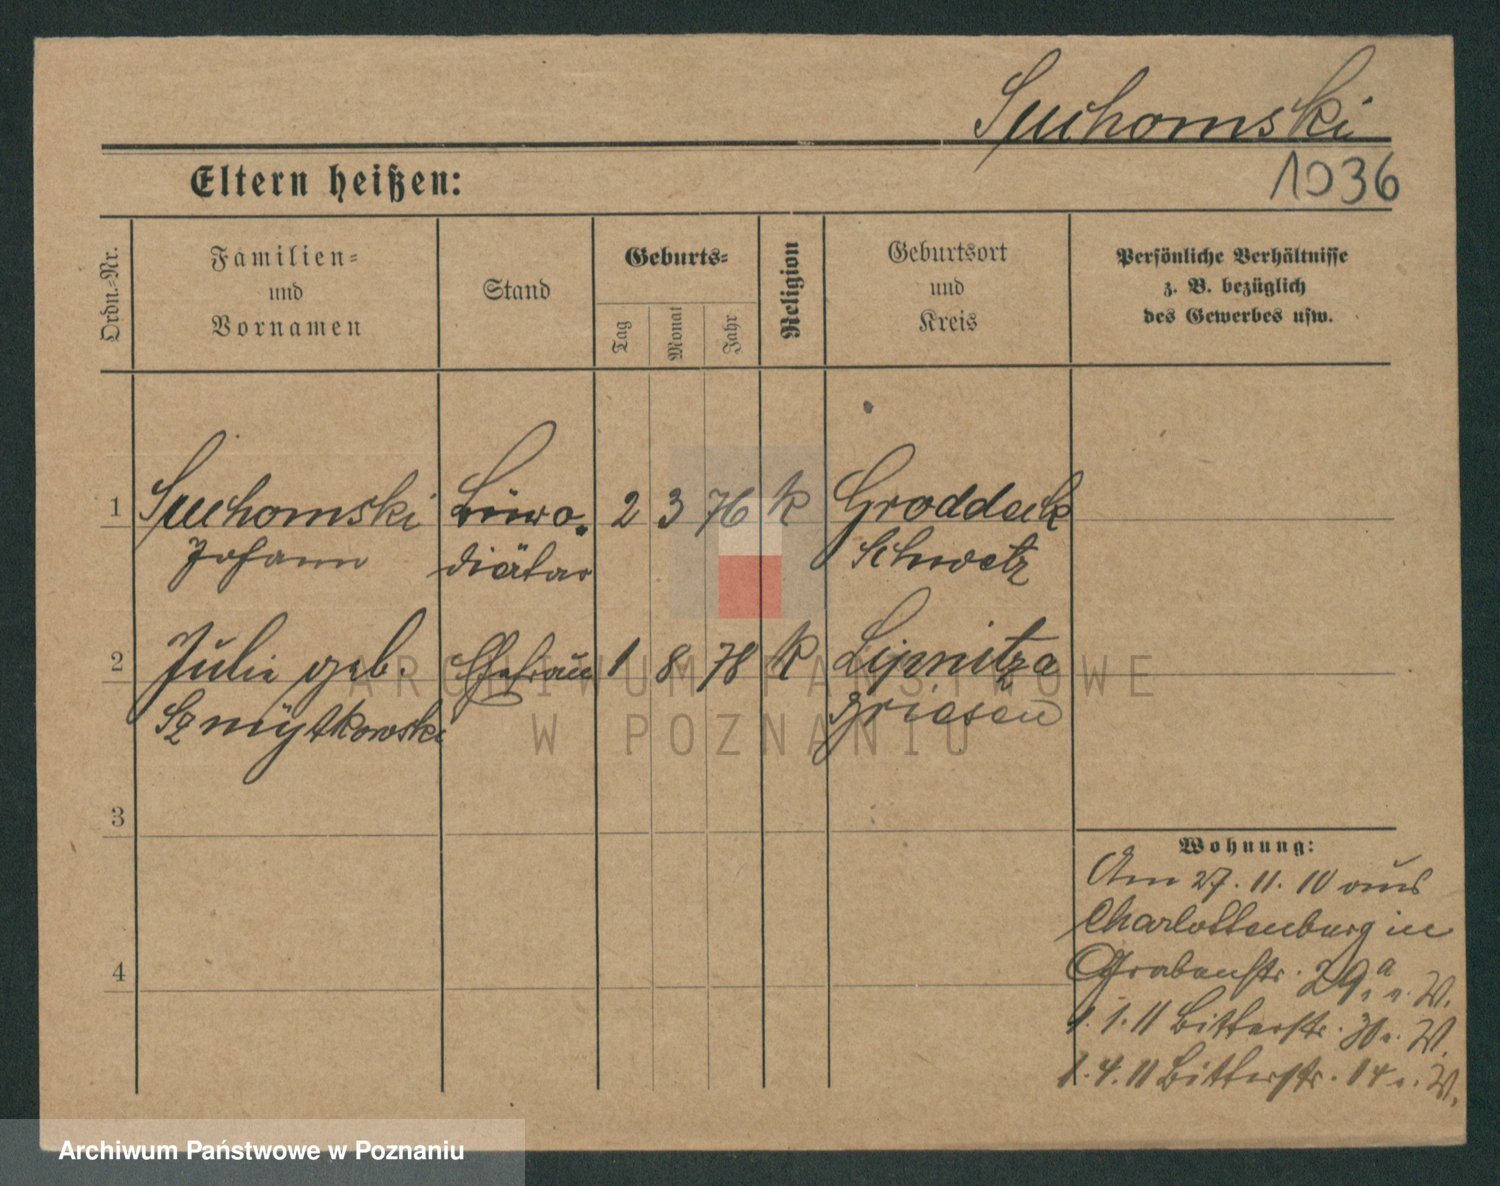 Suchomski
1036
Eltern heißen:
Ordn.-Nr.
Familien-
und
Vornamen
Stand
Geburts-
Tag
Monat
Jahr
Religion
Geburtsort
und
Kreis
Persönliche Verhältnisse
z. B. bezüglich
des Gewerbes usw.
1 Suchomski Büro- 2 3 76 k Groddeck
Johann diätar Schwetz
2 Julie geb. Ehefrau 1 8 78 k Lipnitza
Szmytkowski Briesen
3
4
Wohnung:
Am 27. 11. 10 aus
Charlottenburg in
Grabenstr. 29a v. W.
1. 1. 11 Bitterstr. 30 v. W.
1. 4. 11 Bitterstr. 14 v. W.
ARCHIWUM PAŃSTWOWE
W POZNANIU
Archiwum Państwowe w Poznaniu